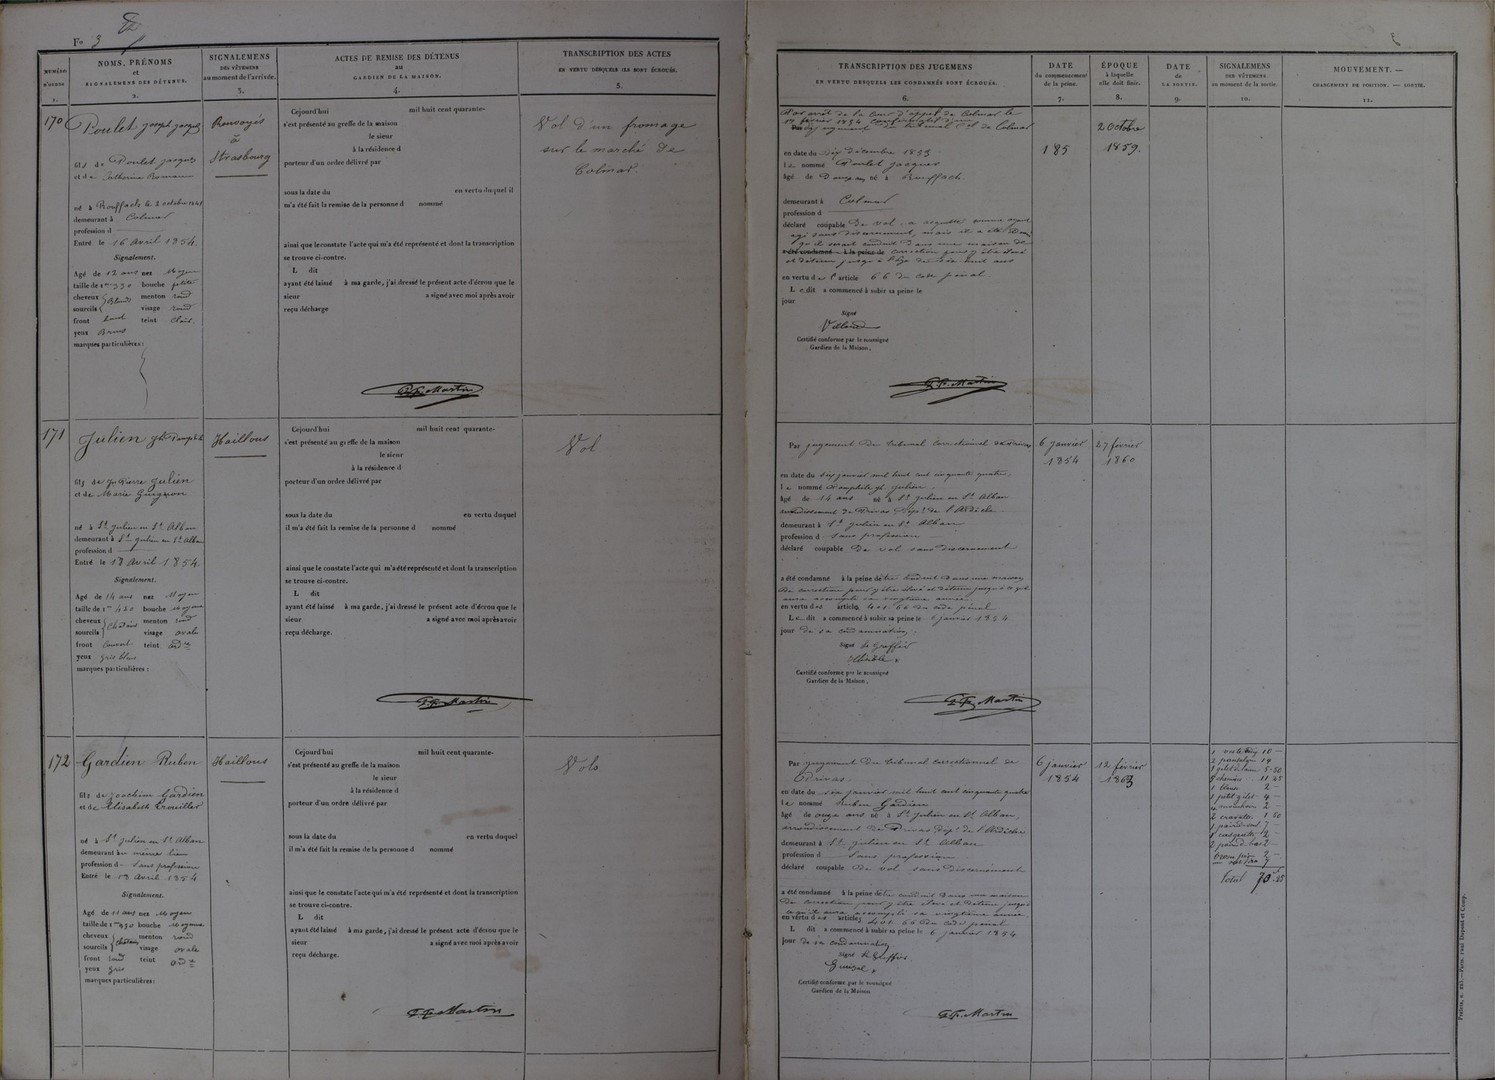 Fo 3
NUMÉRO D'ORDRE 1.
NOMS, PRÉNOMS et SIGNALEMENS DES DÉTENUS. 2.
SIGNALEMENS DES VÊTEMENS au moment de l'arrivée. 3.
ACTES DE REMISE DES DÉTENUS au GARDIEN DE LA MAISON. 4.
TRANSCRIPTION DES ACTES EN VERTU DESQUELS ILS SONT ÉCROUÉS. 5.
170
Poulet Joseph Jacques
fils de Poulet Jacques
et de Catherine
né à Rouffach le 2 octobre
demeurant à Colmar
profession d
Entré le 16 Avril 1854.
Signalement.
Agé de 12 ans nez Moyen
taille de 1m 330 bouche petite
cheveux Blonds menton rond
sourcils visage rond
front haut teint clair
yeux Bruns
marques particulières :
Renvoyés
à
Strasbourg
Cejourd'hui mil huit cent quarante-
s'est présenté au greffe de la maison
le sieur
à la résidence d
porteur d'un ordre délivré par
sous la date du en vertu duquel il
m'a été fait la remise de la personne d nommé
ainsi que le constate l'acte qui m'a été représenté et dont la transcription
se trouve ci-contre.
L dit
ayant été laissé à ma garde, j'ai dressé le présent acte d'écrou que le
sieur a signé avec moi après avoir
reçu décharge
Martin
Vol d'un fromage
sur le marché de
Colmar
171
Julien
fils de Jn Pierre Julien
et de Marie Guignon
né à St Julien en St Alban
demeurant à St Julien en St Alban
profession d
Entré le 18 Avril 1854.
Signalement.
Agé de 14 ans nez Moyen
taille de 1m 430 bouche Moyenne
cheveux Châtains menton rond
sourcils visage ovale
front Couvert teint ordre
yeux gris bleu
marques particulières :
Haillons
Cejourd'hui mil huit cent quarante-
s'est présenté au greffe de la maison
le sieur
à la résidence d
porteur d'un ordre délivré par
sous la date du en vertu duquel
il m'a été fait la remise de la personne d nommé
ainsi que le constate l'acte qui m'a été représenté et dont la transcription
se trouve ci-contre.
L dit
ayant été laissé à ma garde, j'ai dressé le présent acte d'écrou que le
sieur a signé avec moi après avoir
reçu décharge.
Martin
Vol
172
Gardien Ruben
fils de Joachim Gardien
et de Elisabeth Crouillet
né à St Julien en St Alban
demeurant au même lieu
profession d Sans profession
Entré le 18 Avril 1854
Signalement.
Agé de 11 ans nez Moyen
taille de 1m 230 bouche Moyenne
cheveux Châtains menton rond
sourcils visage ovale
front rond teint ordre
yeux gris
marques particulières :
Haillons
Cejourd'hui mil huit cent quarante-
s'est présenté au greffe de la maison
le sieur
à la résidence d
porteur d'un ordre délivré par
sous la date du en vertu duquel
il m'a été fait la remise de la personne d nommé
ainsi que le constate l'acte qui m'a été représenté et dont la transcription
se trouve ci-contre.
L dit
ayant été laissé à ma garde, j'ai dressé le présent acte d'écrou que le
sieur a signé avec moi après avoir
reçu décharge.
Martin
Vols
TRANSCRIPTION DES JUGEMENS EN VERTU DESQUELS LES CONDAMNÉS SONT ÉCROUÉS. 6.
DATE du commencement de la peine. 7.
ÉPOQUE à laquelle elle doit finir. 8.
DATE de LA SORTIE. 9.
SIGNALEMENS DES VÊTEMENS au moment de la sortie. 10.
MOUVEMENT. — CHANGEMENT DE POSITION. — SORTIE. 11.
Par arrêt de la Cour d'appel de Colmar le
17 février 1854 confirmatif d'un
jugement du tribunal Cel de Colmar
en date du Dix décembre 1853
le nommé Poulet Jacques
âgé de Douze ans né à Rouffach
demeurant à Colmar
profession d
déclaré coupable de vol, a acquitté comme ayant
agi sans discernement, mais il a été
qu'il serait conduit dans une maison de
a été condamné à la peine de correction pour y être élevé
et détenu jusqu'à l'âge de dix huit ans
en vertu de l'article 66 du code pénal.
Le dit a commencé à subir sa peine le
jour
Signé
Certifié conforme par le soussigné
Gardien de la Maison,
Martin
185
2 octobre
1859.
Par jugement du tribunal correctionnel de Privas
en date du Six janvier mil huit cent cinquante quatre,
le nommé Pamphile Julien
âgé de 14 ans né à St Julien en St Alban
arrondissement de Privas Dépt de l'Ardèche
demeurant à St Julien en St Alban
profession d Sans profession
déclaré coupable de vol sans discernement
a été condamné à la peine d'être conduit dans une maison
de correction pour y être élevé et détenu jusqu'à ce qu'il
aura accompli sa vingtième année
en vertu des articles 401. 66 du code pénal
Le dit a commencé à subir sa peine le 6 janvier 1854
jour de sa condamnation
Signé le Greffier
Certifié conforme par le soussigné
Gardien de la Maison,
Martin
6 janvier
1854
27 février
1860
Par jugement du tribunal correctionnel de
Privas.
en date du six janvier mil huit cent cinquante quatre
le nommé Ruben Gardien
âgé de onze ans né à St Julien en St Alban,
arrondissement de Privas Dépt de l'Ardèche
demeurant à St Julien en St Alban
profession d Sans profession
déclaré coupable de vol sans discernement
a été condamné à la peine d'être conduit dans une maison
de correction pour y être élevé et détenu jusqu'à
ce qu'il aura accompli sa vingtième année
en vertu des articles 401. 66 du code pénal
L dit a commencé à subir sa peine le 6 janvier 1854
jour de sa condamnation
Signé le Greffier
Certifié conforme par le soussigné
Gardien de la Maison
Martin
6 janvier
1854
12 février
1863
1 veste 10 —
2 pantalon 19
5 chemises 11 25
1 blouse 2 —
1 petit gilet 4 —
4 mouchoirs 2 —
2 cravates 1 50
1 casquette 2 —
2 paire bas 2 —
total 70 25